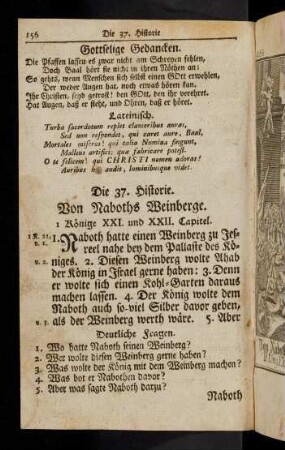 156 Die 37. Historie
Gottselige Gedancken.
Die Pfaffen lassen es zwar nicht am Schreyen fehlen,
Doch Baal hört sie nicht in ihren Nöthen an:
So gehts, wenn Menschen sich selbst einen GOtt erwehlen,
Der weder Augen hat, noch etwas hören kan.
Ihr Christen, seyd getrost! den GOtt, den ihr verehret,
Hat Augen, daß er sieht, und Ohren, daß er höret.
Lateinisch.
Turba sacerdotum replet clamoribus auras,
Sed non respondet, qui caret aure, Baal,
Mortales miseros! qui talia Numina fingunt,
Mallens artifici: qua fabricare potest.
O te felicem! qui CHRISTI numen adoras!
Auribus hic audit, luminibusque videt.
Die 37. Historie.
Von Naboths Weinberge.
1 Könige XXI. und XXII. Capitel.
1 K. 21. 1. Naboth hatte einen Weinberg zu Jes-
v. 1. reel nahe bey dem Pallaste des Kö-
v. 2. niges. 2. Diesen Weinberg wolte Ahab
der König in Israel gerne haben: 3. Denn
er wolte sich einen Kohl-Garten daraus
machen lassen. 4. Der König wolte dem
Naboth auch so-viel Silber davor geben,
v. 3. als der Weinberg werth wäre. 5. Aber
Deutliche Fragen.
1. Wo hatte Naboth seinen Weinberg?
2. Wer wolte diesen Weinberg gerne haben?
3. Was wolte der König mit dem Weinberg machen?
4. Was bot er Nabothen davor?
5. Aber was sagte Naboth darzu?
Naboth